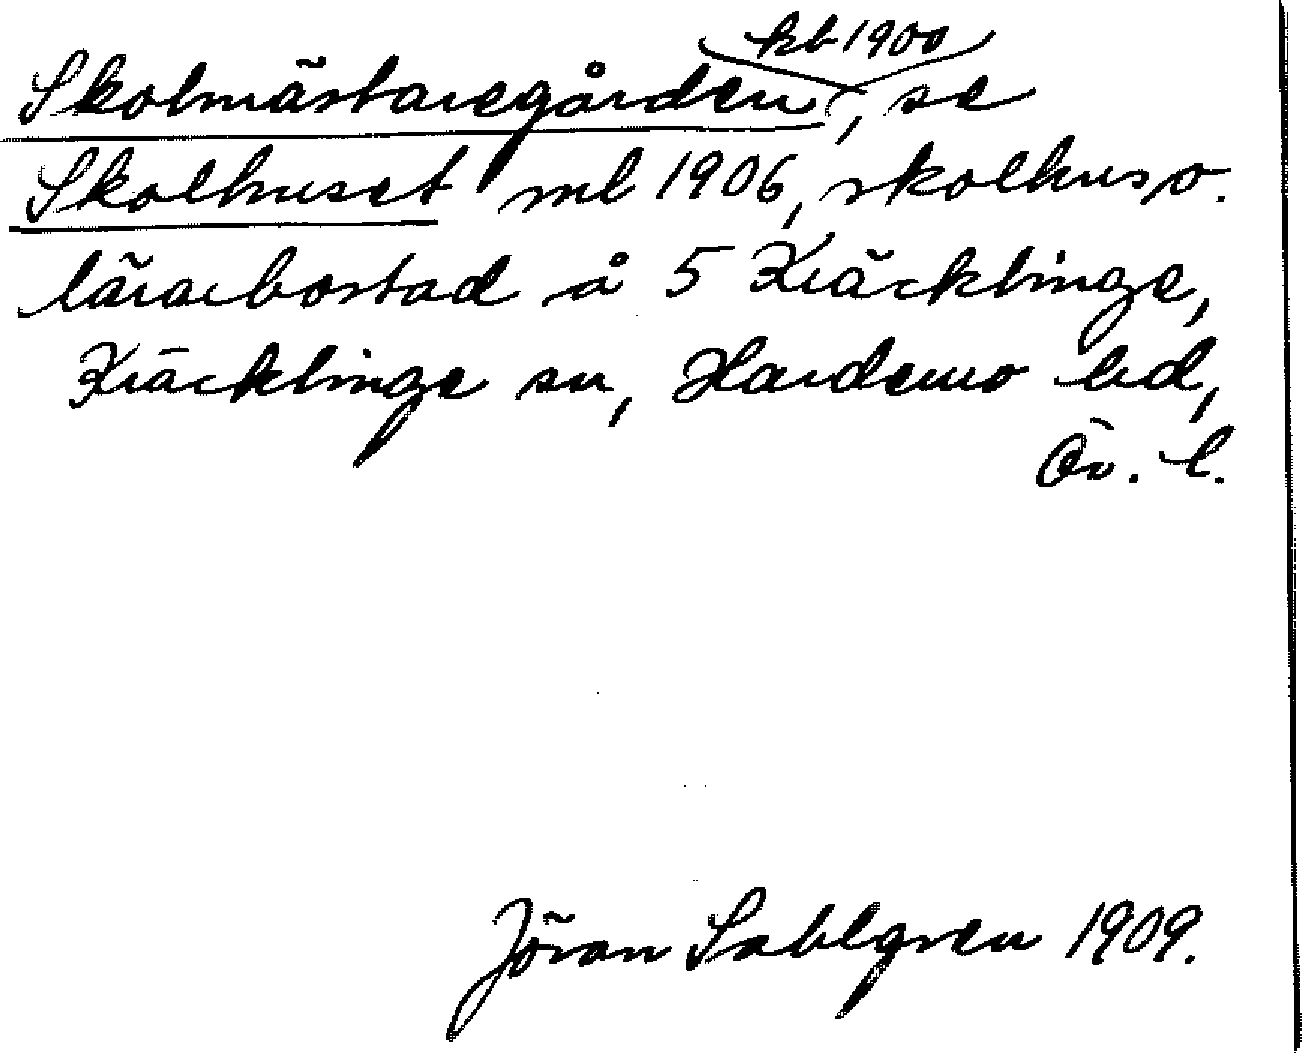 kb 1900
Skolmästaregården, se
Skolhuset ml 1906, skolhus o.
lärarbostad å 5 Kräcklinge,
Kräcklinge sn, Hardemo hd,
Ör. l.
Jöran Sahlgren 1909.